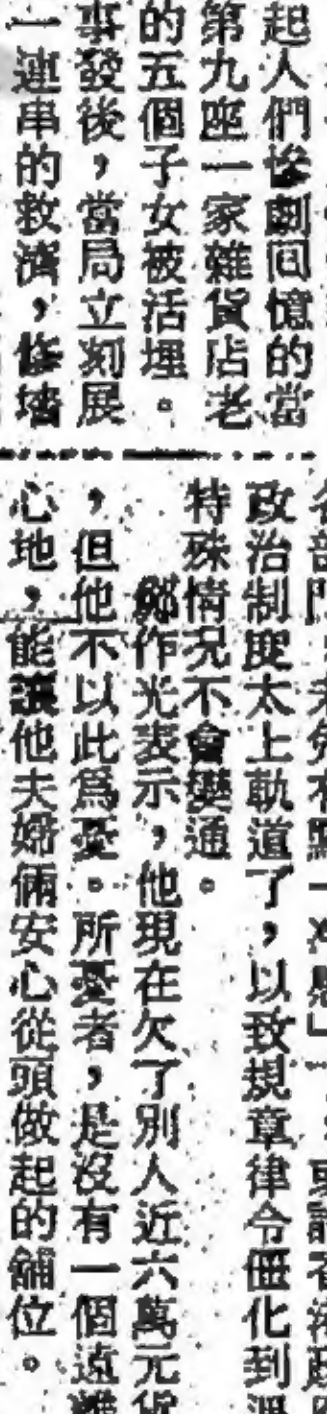 起人們慘劇回憶的當
第九座一家雜貨店老
的五個子女被活埋。
事發後，當局立刻展
一連串的救濟，修墻
政治制度太上軌道了，以致規章律令僵化到
特殊情況不會變通。
鄭作光表示，他現在欠了別人近六萬元貨
，但他不以此爲憂。所憂者，是沒有一個遠離
心地，能讓他夫婦倆安心從頭做起的舖位。